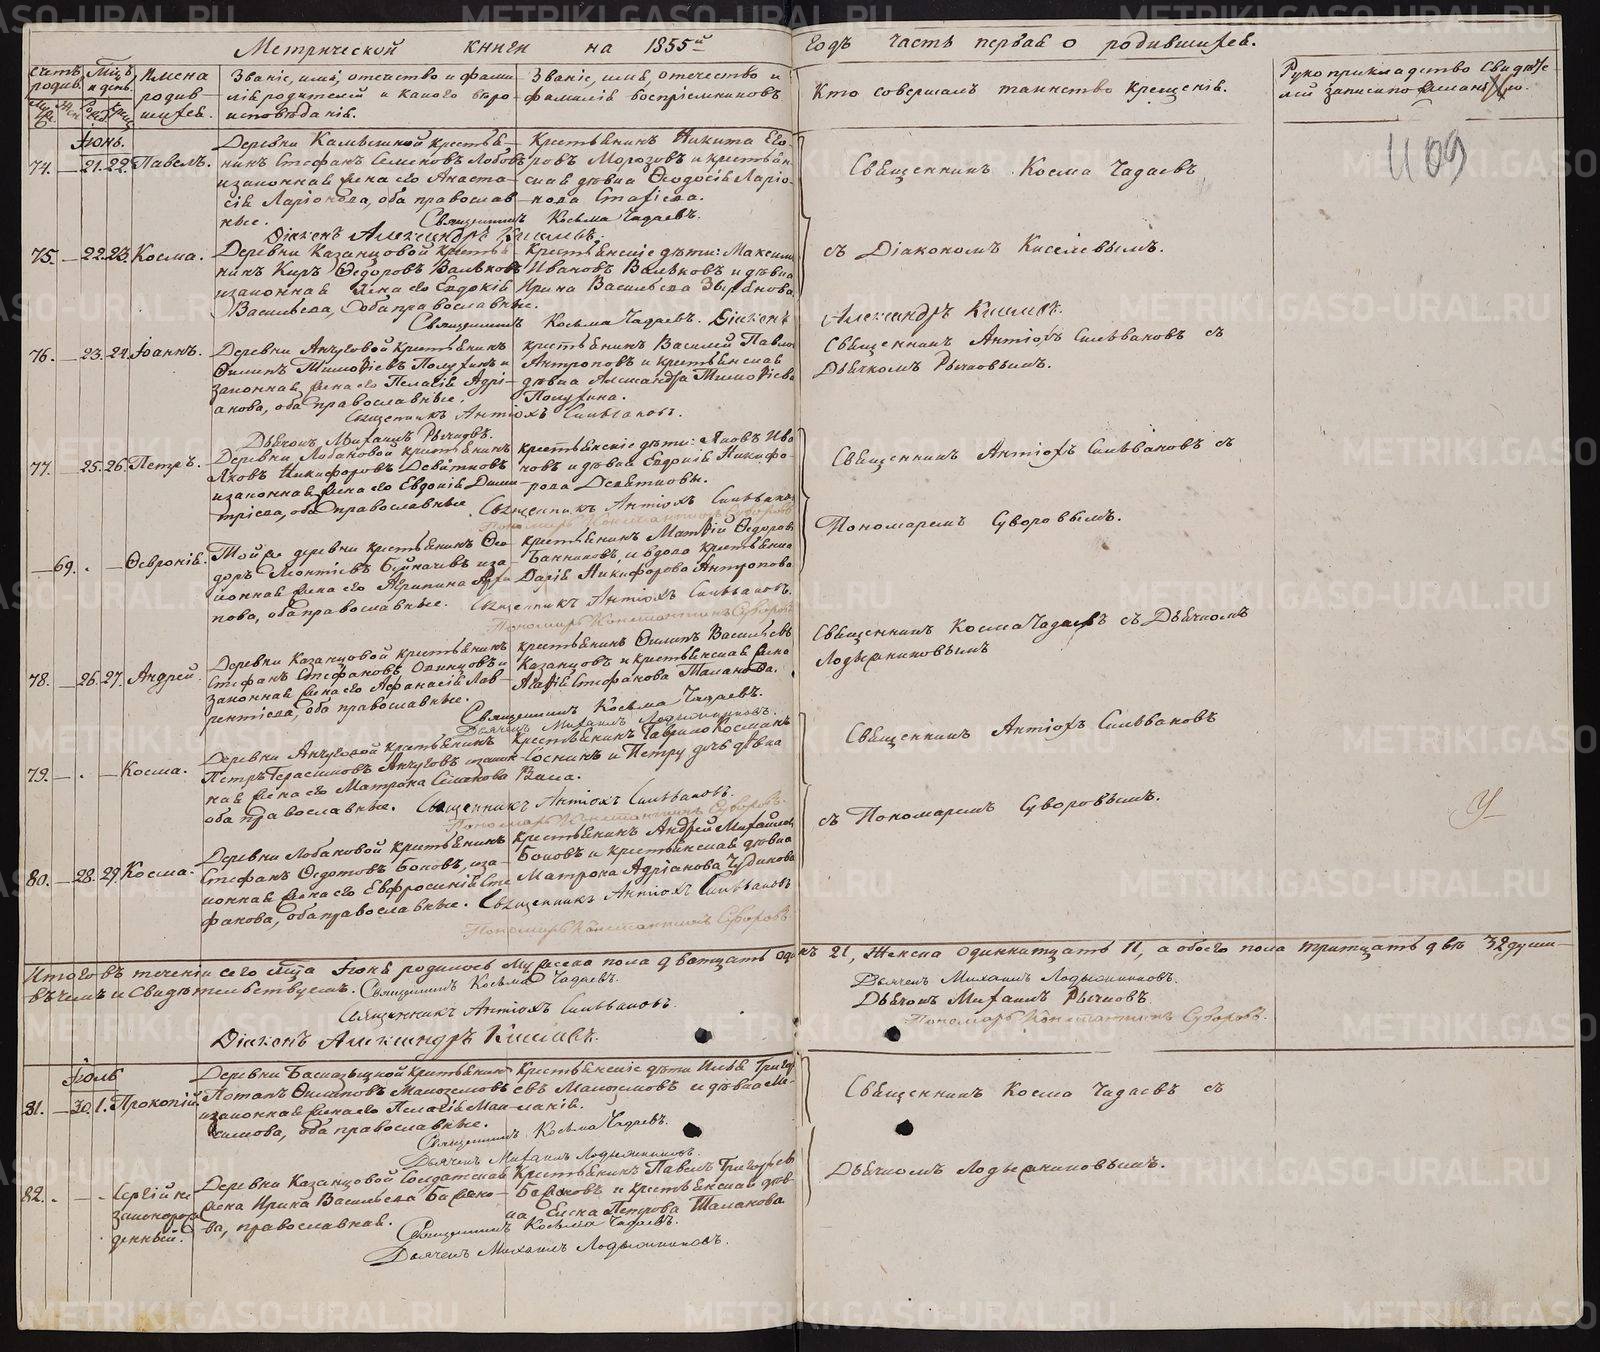 Метрической книги на 1855й годъ часть первая о родившихся.
Счетъ родив.
Мц̃ъ и день.
Имена родившихся.
Званіе, имя, отечество и фамилія родителей и какого вѣроисповѣданія.
Званіе, имя, отечество и фамилія воспріемниковъ
Кто совершалъ таинство крещенія.
Рукоприкладство свидѣтелей записи по желанію.
1109
Іюнь.
74. — 21. 22. Павелъ.
Деревни Камышной крестья-
нинъ Стефанъ Семеновъ Лобовъ
и законная жена его Анаста-
сія Ларіонова, оба православ-
ные.
Крестьянинъ Никита Его-
ровъ Морозовъ и крестьян-
ская дѣвка Ѳеодосія Ларіо-
нова
Священникъ Косьма Чадаевъ.
Діаконъ Александръ Киселевъ.
Священникъ Косма Чадаевъ
75. — 22. 23. Косма.
Деревни Казанцовой крестья-
нинъ Киръ Ѳедоровъ Вальковъ
и законная жена его Евдокія
Васильева, оба православные.
Крестьянскіе дѣти: Максимъ
Ивановъ Вальковъ и дѣвка
Ирина Васильева
Священникъ Косьма Чадаевъ. Діаконъ
Александръ Киселевъ.
съ Діакономъ Киселевымъ.
76. — 23. 24. Іоаннъ.
Деревни Анчуговой крестьянинъ
Филипъ Тимофіевъ Полухинъ и
законная жена его Пелагія Адрі-
анова, оба православные.
крестьянинъ Василій Павловъ
Антроповъ и крестьянская
дѣвка Александра Тимофіева
Полухина.
Священникъ Антіохъ Сильвановъ.
Дьячокъ Михаилъ Рычковъ.
Священникъ Антіохъ Сильвановъ съ
Дьячкомъ Рычковымъ.
77. — 25. 26. Петръ.
Деревни Лобановой крестьянинъ
Яковъ Никифоровъ Девятковъ
и законная жена его Евдокія Дими-
тріева, оба православные.
крестьянскіе дѣти: Яковъ Ива-
новъ и дѣвка Евдокія Никифо-
рова Девятковы.
Священникъ Антіохъ Сильвановъ
Пономарь Константинъ Суворовъ
Священникъ Антіохъ Сильвановъ съ
Пономаремъ Суворовымъ.
— 69. . — Ѳевронія.
Той же деревни крестьянинъ Ѳео-
доръ Леонтіевъ и за-
конная жена его Агрипина
нова, оба православные.
крестьянинъ Матфій Ѳедоровъ
Банниковъ, и вдова крестьянка
Дарія Никифорова Антропова
Священникъ Антіохъ Сильвановъ.
Пономарь Константинъ Суворовъ
78. — 26. 27. Андрей.
Деревни Казанцовой крестьянинъ
Стефанъ Стефановъ Одинцовъ и
законная жена его Афанасія Лав-
рентіева, оба православные.
крестьянинъ Филипъ Васильевъ
Казанцовъ и крестьянская жена
Агафія Стефанова Таланова.
Священникъ Косьма Чадаевъ.
Дьячекъ Михаилъ Лодыжниковъ.
Священникъ Косма Чадаевъ съ Дьячкомъ
Лодыжниковымъ
79. — . — Косма.
Деревни Анчуговой крестьянинъ
Петръ Герасимовъ Анчуговъ и закон-
ная жена его Матрона Семенова
оба православные.
Крестьянинъ Гаврило Косминъ
Соснинъ и
Священникъ Антіохъ Сильвановъ.
Пономарь Константинъ Суворовъ.
Священникъ Антіохъ Сильвановъ
80. — 28. 29. Косма.
Деревни Лобановой крестьянинъ
Стефанъ Ѳедотовъ Боковъ, и за-
конная жена его Евфросинія Сте-
фанова, оба православные.
Крестьянинъ Андрей Михайловъ
Боковъ и крестьянская дѣвка
Матрона Адріанова Чудинова
Священникъ Антіохъ Сильвановъ
Пономарь Константинъ Суворовъ
съ Пономаремъ Суворовымъ.
У
Итого въ теченіи сего мц̃а Іюня родилось Мужеска пола двадцать одинъ 21, Женска одиннатцать 11, а обоего пола тритцать двѣ 32 души —
въ чемъ и Свидѣтельствуемъ. Священникъ Косьма Чадаевъ.
Священникъ Антіохъ Сильвановъ.
Діаконъ Александръ Киселевъ.
Дьячекъ Михаилъ Лодыжниковъ.
Дьячокъ Михаилъ Рычковъ.
Пономарь Константинъ Суворовъ.
Іюль
81. — 30. 1. Прокопій.
Деревни крестьянинъ
Потапъ Филиповъ Малоземовъ
и законная жена его Пелагія Мак-
симова, оба православные.
Крестьянскіе дѣти Илья Григорь-
евъ Малоземовъ и дѣвка Ме-
ланія.
Священникъ Косьма Чадаевъ.
Дьячекъ Михаилъ Лодыжниковъ.
Священникъ Косма Чадаевъ съ
82. . — — Сергій не
законорож-
денный.
Деревни Казанцовой Солдатская
жена Ирина Васильева Бажено-
ва, православная.
Крестьянинъ Павелъ Григорьевъ
Баженовъ и крестьянская дѣв-
ка Елена Петрова Таланова
Священникъ Косьма Чадаевъ.
Дьячекъ Михаилъ Лодыжниковъ.
Дьячкомъ Лодыжниковымъ.
METRIKI.GASO-URAL.RU